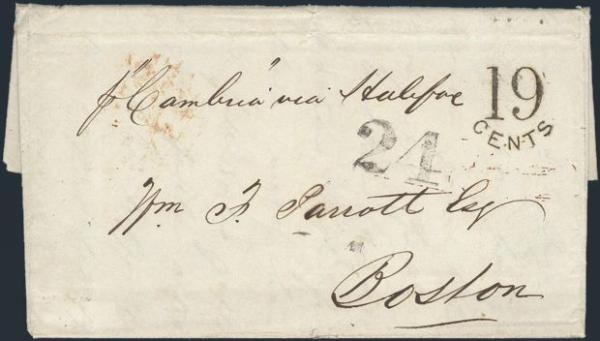 p "Cambria" via Halifax
19
CENTS
24
Wm F. Parrott Esq
Boston